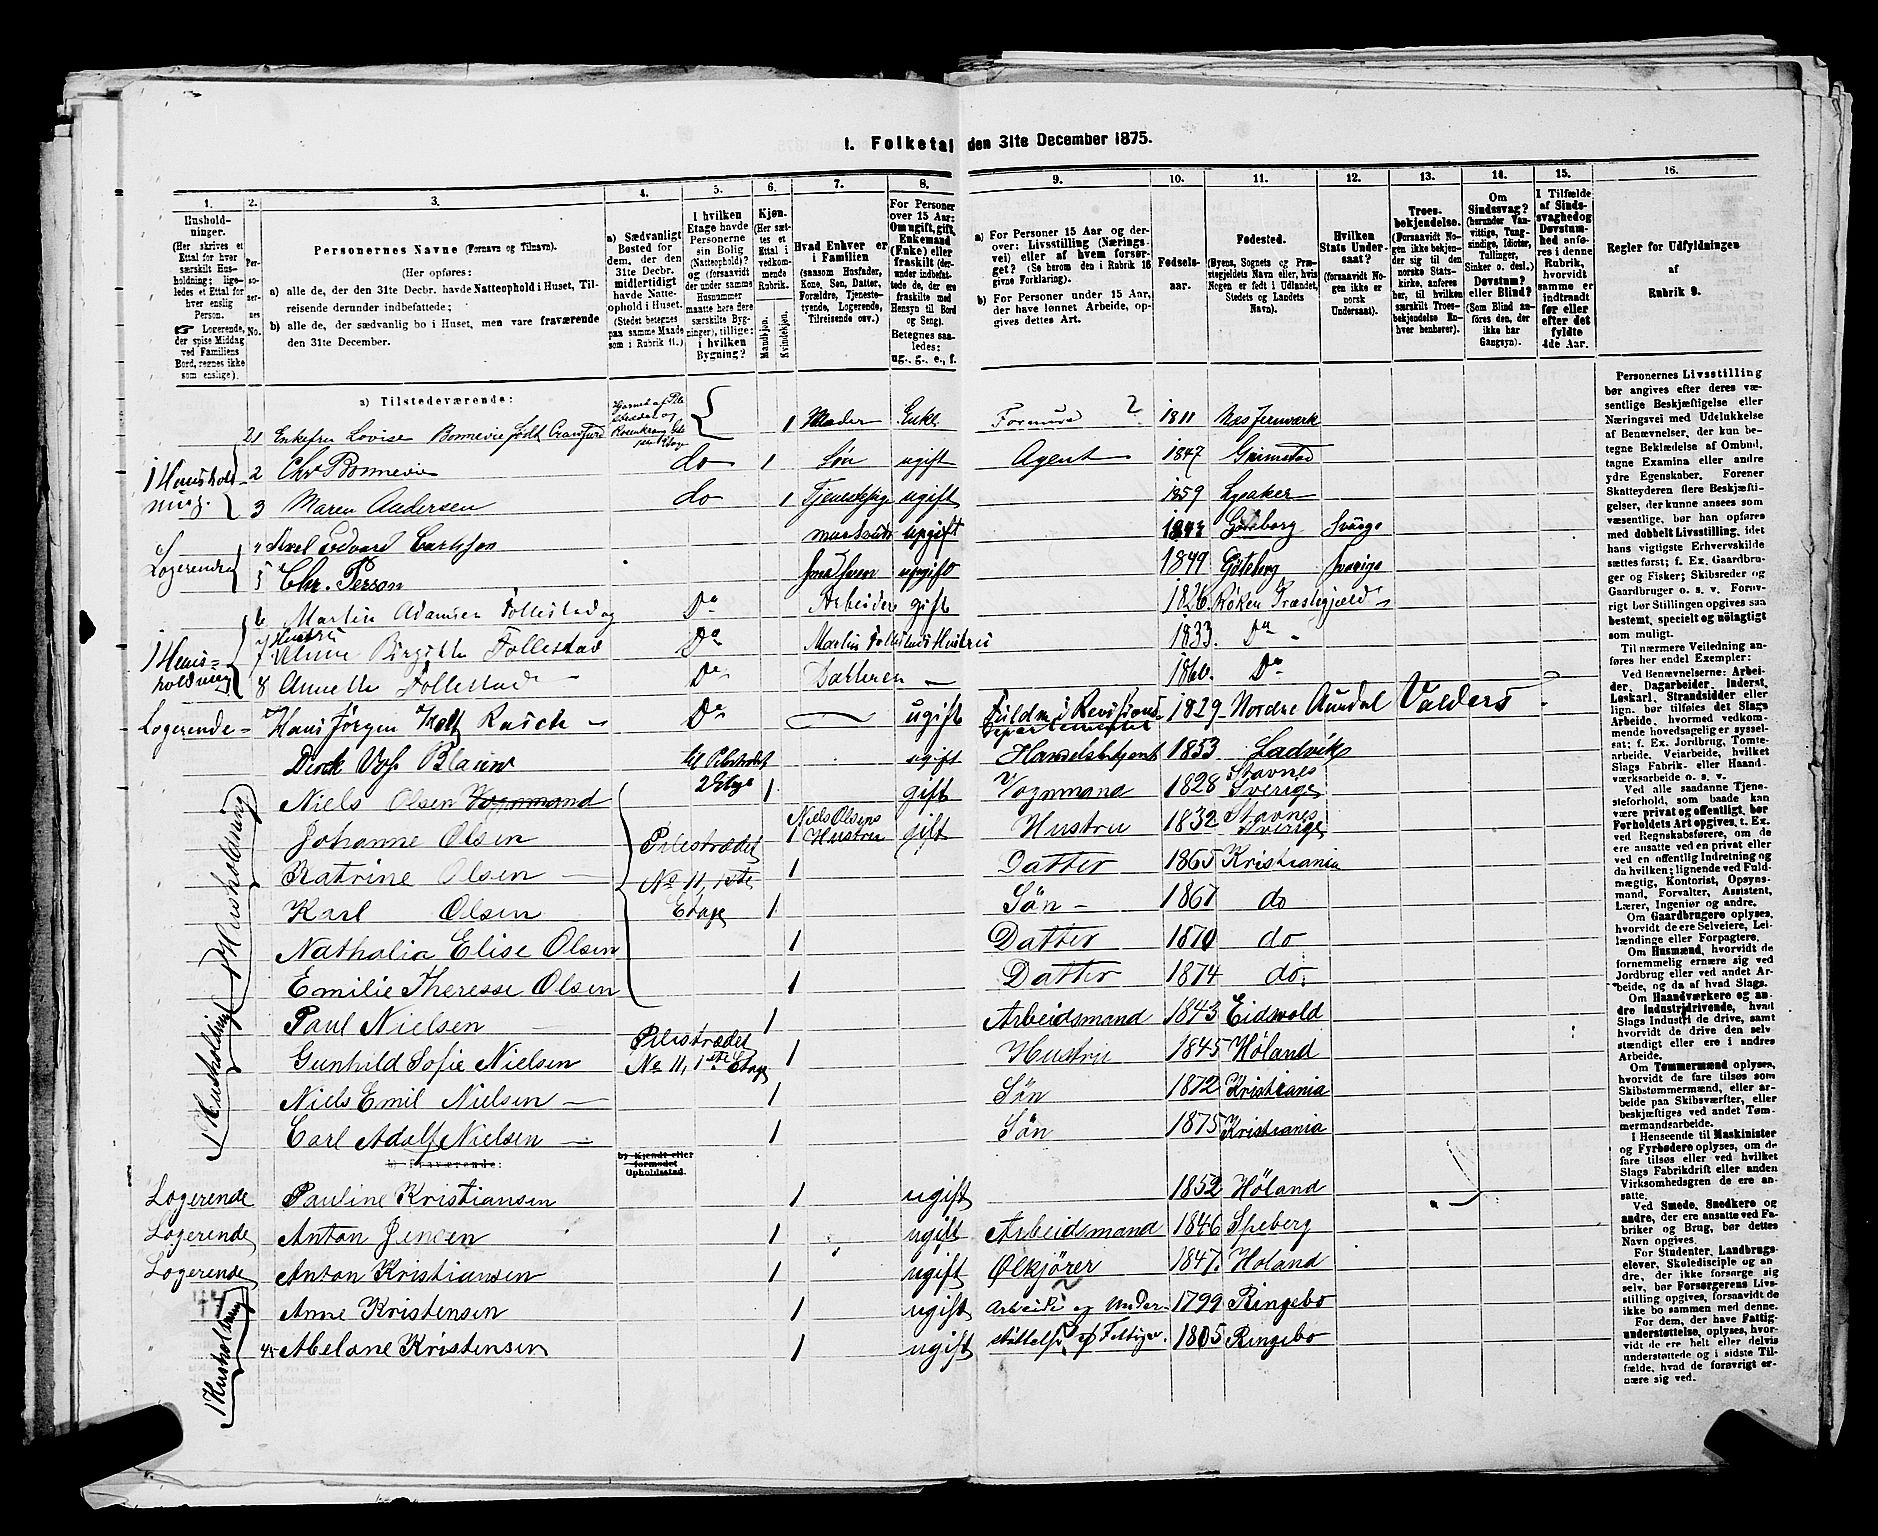 1. Folketal den 31te December 1875.
1. 2. 3. 4. 5. 6. 7. 8. 9. 10. 11. 12. 13. 14. 15. 16.
Husholdninger.
(Her skrives et
Ettal for hver
særskilt Husholdning;
ligeledes et Ettal for
hver enslig
Person.
☞ Logerende,
der spise Middag
ved Familiens
Bord, regnes ikke
som enslige).
Personernes No.
Personernes Navne (Fornavn og Tilnavn).
(Her opføres:
a) alle de, der den 31te Decbr. havde Natteophold i Huset, Tilreisende
derunder indbefattede;
b) alle de, der sædvanlig bo i Huset, men vare fraværende
den 31te December.
a) Sædvanligt
Bosted for
dem, der den
31te Decbr.
midlertidigt
havde Natteophold
i Huset.
(Stedet betegnes
paa samme Maade
som i Rubrik 11.)
I hvilken
Etage havde
Personerne
sin Bolig
(Natteophold)?
og (forsaavidt
der under samme
Husnummer
maatte høre flere
særskilte Bygninger),
tillige:
i hvilken
Bygning?
Kjøn.
(Her sættes
et
Ettal i
vedkommende
Rubrik.
Mandkjøn.
Kvindekjøn.
Hvad Enhver er
i Familien
(saasom Husfader,
Kone, Søn, Datter,
Forældre, Tjenestetyende,
Logerende,
Tilreisende osv.)
For Personer
over 15 Aar:
Om ugift, gift,
Enkemand
(Enke) eller
fraskilt (derunder
indbefattede
de, der ere
fraskilte med
Hensyn til Bord
og Seng).
Betegnes saaledes:
ug., g., e., f.
a) For Personer 15 Aar og derover:
Livsstilling (Næringsvei)
eller af hvem forsørget?
(Se herom den i Rubrik 16
givne Forklaring).
b) For Personer under 15 Aar,
der have lønnet Arbeide, opgives
dettes Art.
Fødselsaar.
Fødested.
(Byens, Sognets og Præstegjeldets
Navn eller, hvis
Nogen er født i Udlandet,
Stedets og Landets
Navn).
Hvilken
Stats Undersaat?
(forsaavidt Nogen
ikke er
norsk
Undersaat).
Troesbekjendelse.
(Forsaavidt Nogen
ikke bekjender
sig til den
norske Statskirke,
anføres
her, til hvilken
særskilt Troesbekjendelse
Enhver
henhører).
Om
Sindssvag?
(herunder Vanvittige,
Tungsindige,
Idioter,
Tullinger,
Sinker o. desl.)
Døvstum?
eller Blind?
(Som Blind anføres
den, der
ikke har
Gangsyn).
I Tilfælde
af Sindssvaghed
og
Døvstumhed
anføres
i denne
Rubrik,
hvorvidt
samme er
indtraadt
før eller
efter det
fyldte
4de Aar.
Regler for Udfyldningen
af
Rubrik 9.
a) Tilstedeværende:
21 Enkefru Lovise Bonnevie født 1 Moder Enke 1811 Næs Jernværk
1 Husholdning. 2 Chr Bonnevie do 1 Søn ugift Agent 1847 Grimstad
3 Maren Andersen do 1 ugift 1859 Lysaker
Logerende Axel Edvard Carlsson ugift Göteborg Sverige
5 Chr. Person ugift 1849 Göteborg Sverige
6 Martin Follestad Do Arbeider gift 1826 Røken Præstegjeld
1 Husholdning 7 Hustru Birgitte Follestad Do Martin Follestads Hustru 1833 Do
8 Annette Follestad Do Datteren Do
Logerende Hans Jørgen Rasch Do ugift Fuldm. i Revisions-departementet 1829 Nordre Aurdal Valders
Dirck Vos ugift Handelsbetjent 1853 Ladvik
2 Etage
Niels Olsen Vognmand 1 gift Vognmand 1828 Stavnes Sverige
Johanne Olsen Pilestrædet 1 Niels Olsens Hustru gift Hustru 1832 Stavnes Sverige
Katrine Olsen No 11, 1ste 1 Datter 1865 Kristiania
1 Husholdning Karl Olsen Etage 1 Søn 1867 do
Nathalia Elise Olsen 1 Datter 1870 do
Emilie Theresse Olsen 1 Datter 1874 do.
Paul Nielsen Pilestrædet 1 Arbeidsmand 1843 Eidsvold
1 Husholdning Gunhild Sofie Nielsen No 11, 1ste Etage 1 Hustru 1845 Høland
Niels Emil Nielsen 1 Søn 1872 Kristiania
Carl Adolf Nielsen 1 Søn 1875 Kristiania
b) Fraværende:
b) Kjendt eller
formodet
Opholdssted.
Logerende Pauline Kristiansen 1 ugift 1852 Høland
Logerende Anton Jensen 1 ugift Arbeidsmand 1846 Speberg
Logerende Anton Kristiansen 1 ugift Ølkjører 1847 Høland
1 Husholdning Anne Kristensen 1 ugift 1799 Ringebo
Abelone Kristensen 1 ugift 1805 Ringebo
Personernes Livsstilling
bør angives efter deres væsentlige
Beskjæftigelse eller
Næringsvei med Udelukkelse
af Benævnelser, der kun betegne
Beklædelse af Ombud,
tagne Examina eller andre
ydre Egenskaber. Forener
Skatteyderen flere Beskjæftigelser,
der kunne ansees som
væsentlige, bør han opføres
med dobbelt Livsstilling, idet
hans vigtigste Erhvervskilde
sættes først; f. Ex. Gaardbruger
og Fisker; Skibsreder og
Gaardbruger o. s. v. Forøvrigt
bør Stillingen opgives saa
bestemt, specielt og nøiagtigt
som muligt.
Til nærmere Veiledning anføres
her endel Exempler:
Ved Benævnelserne: Arbeider,
Dagarbeider, Inderst,
Løskarl, Strandsidder eller
lign. bør tilføies det Slags
Arbeide, hvormed vedkommende
hovedsagelig er sysselsat;
f. Ex. Jordbrug, Tomtearbeide,
Veiarbeide, hvilket
Slags Fabrik- eller Haandværksarbeide
o. s. v.
Ved alle saadanne Tjenesteforhold,
som baade kan
være privat og offentligt, bør
Forholdets Art opgives, t. Ex.
ved Regnskabsførere, om de
ere ansatte ved en privat eller
ved en offentlig Indretning og
da hvilken; lignende ved Fuldmægtig,
Kontorist, Opsynsmand,
Forvalter, Assistent,
Lærer, Ingeniør og andre.
Om Gaardbrugere oplyses,
hvorvidt de ere Selveiere, Leilændinge
eller Forpagtere.
Om Husmænd, hvorvidt de
fornemmelig ernære sig ved
Jordbrug eller ved andet Arbeide,
og da af hvad Slags.
Om Haandværkere og andre
Industridrivende, hvad
Slags Industri de drive, samt
hvorvidt de drive den selvstændigt
eller ere i andres
Arbeide.
Om Tømmermænd oplyses,
hvorvidt de fare tilsøs som
Skibstømmermænd, eller arbeide
paa Skibsværfter, eller
beskjæftiges ved andet Tømmermandsarbeide.
I Henseende til Maskinister
og Fyrbødere oplyses, om de
fare tilsøs eller ved hvilket
Slags Fabrikdrift eller anden
Virksomhedsgren de ere ansatte.
Ved Smede, Snedkere og
andre, der ere ansatte ved Fabriker
og Brug, bør dettes
Navn opgives.
For Studenter, Landbrugselever,
Skoledisciple og andre,
der ikke forsørge sig
selv, bør Forsørgerens Livsstilling
opgives, forsaavidt de
ikke bo sammen med denne.
For dem, der have Fattigunderstøttelse,
oplyses, hvorvidt
de ere helt eller delvis
understøttede og i sidste Tilfælde,
hvad de forøvrigt ernære
sig ved.